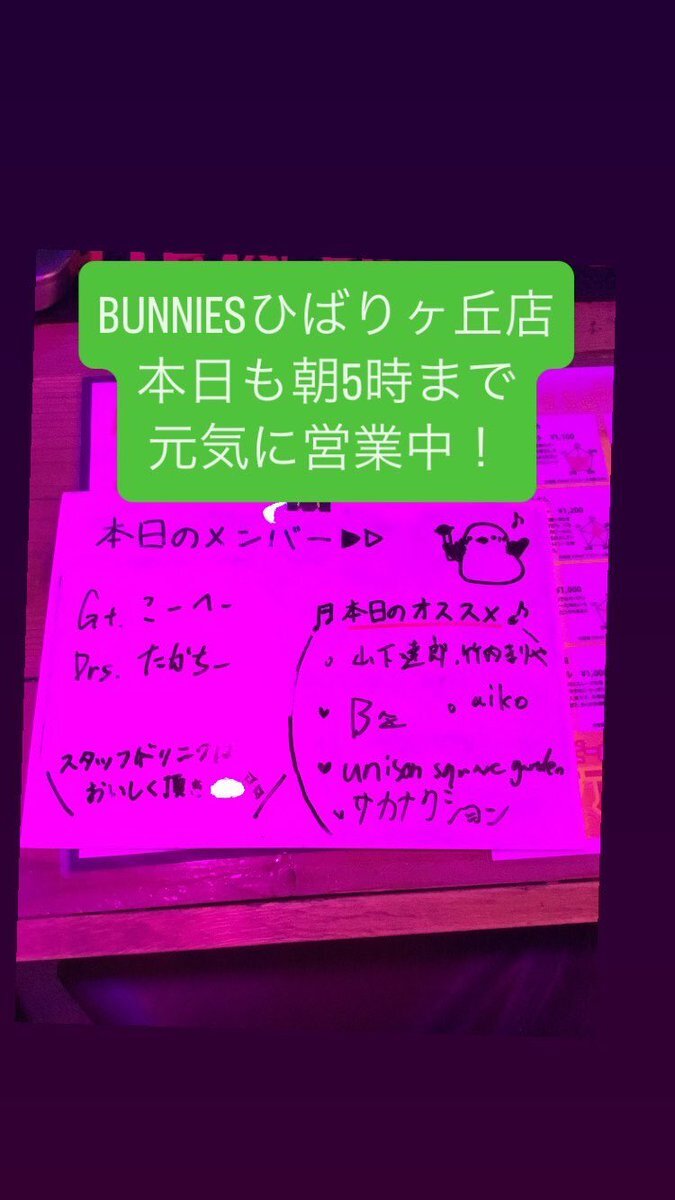 BUNNIESひばりヶ丘店
本日も朝5時まで
元気に営業中！
本日のメンバー▶▷
Gt. こーへー
Drs. たかちー
スタッフドリンクは
おいしく頂き
♬本日のオススメ♪
山下達郎、竹内まりや
♥ B'z 。aiko
♥ unison square garden
♥ サカナクション
¥1,200